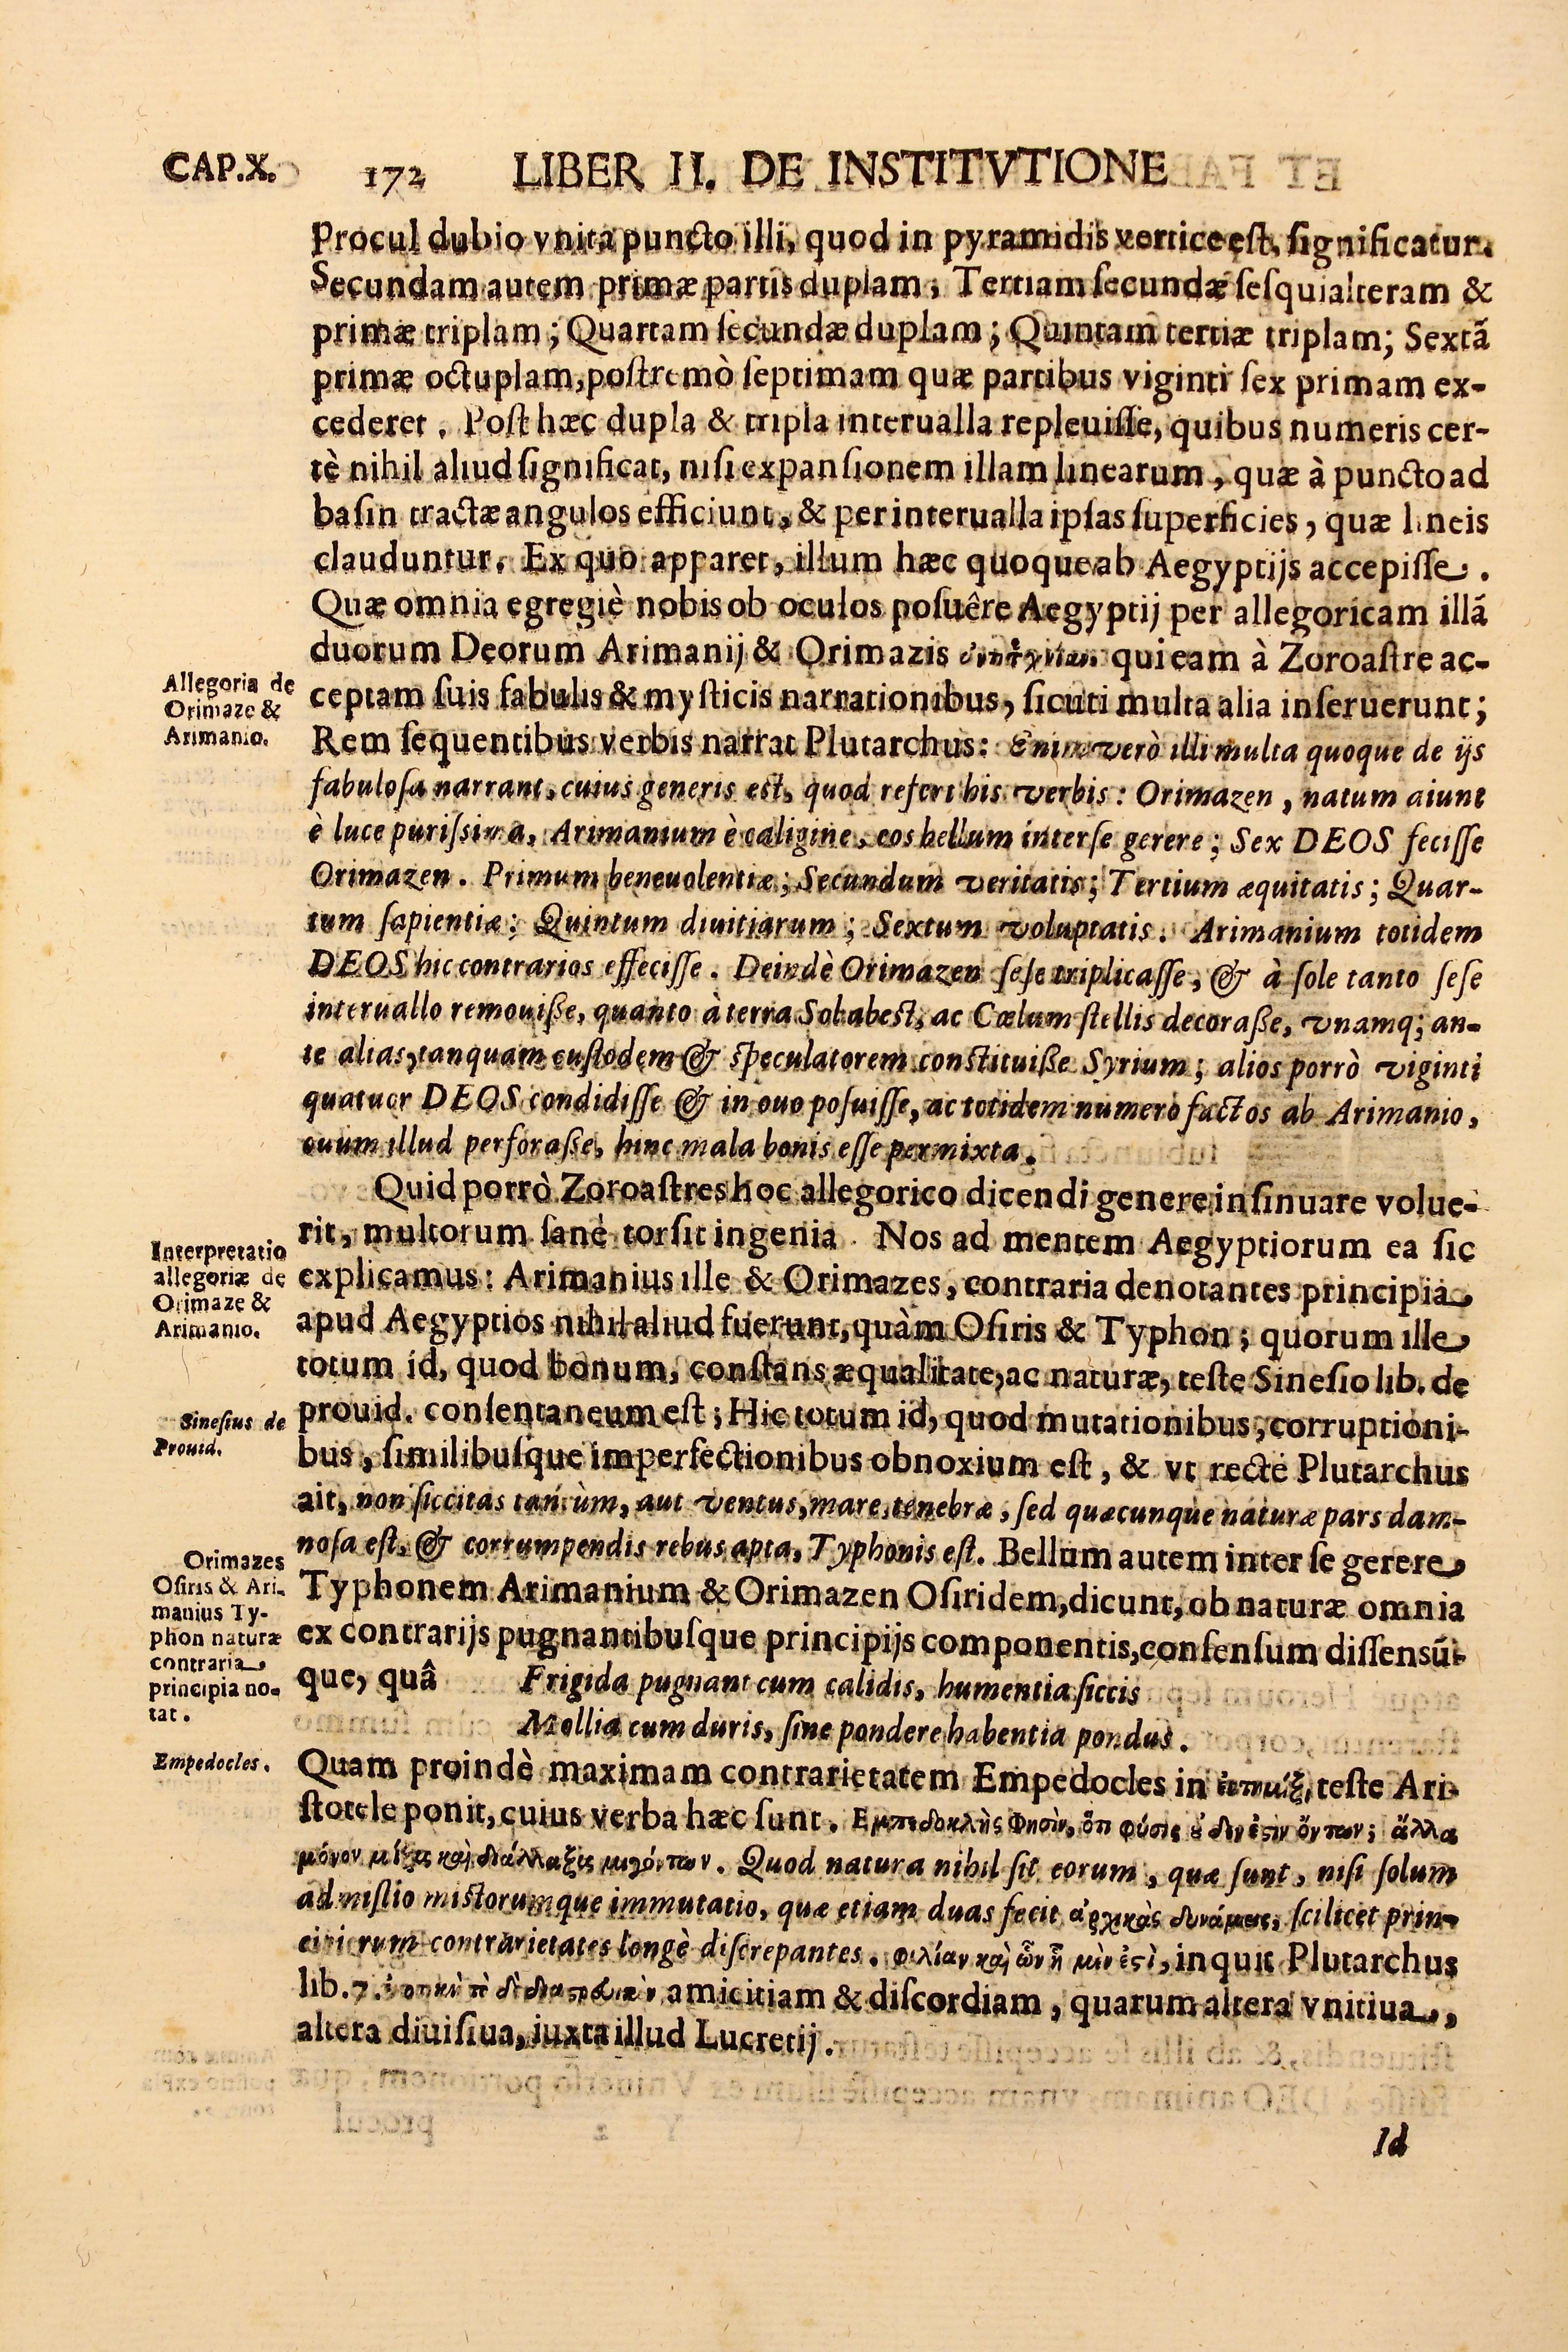 CAP.X.
172
LIBER II. DE INSTITVTIONE
Procul dubio vnita puncto illi, quod in pyramidis vertice est, significatur.
Secundam autem primæ partis duplam, Tertiam secundæ sesquialteram &
primæ triplam; Quartam secundæ duplam; Quintam tertiæ triplam; Sextã
primæ octuplam, postremò septimam quæ partibus viginti sex primam ex-
cederet. Post hæc dupla & tripla interualla repleuisse, quibus numeris cer-
tè nihil aliud significat, nisi expansionem illam linearum, quæ à puncto ad
basin tractæ angulos efficiunt, & per interualla ipsas superficies, quæ lineis
clauduntur. Ex quo apparet, illum hæc quoque ab Aegyptijs accepisse.
Quæ omnia egregiè nobis ob oculos posuêre Aegyptij per allegoricam illã
duorum Deorum Arimanij & Orimazis qui eam à Zoroastre ac-
Allegoria de
Orimaze &
Arimanio.
ceptam suis fabulis & mysticis narrationibus, sicuti multa alia inseruerunt;
Rem sequentibus verbis narrat Plutarchus: Enimverò illi multa quoque de ijs
fabulosa narrant, cuius generis est, quod refert his verbis: Orimazen, natum aiunt
è luce purissima, Arimanium è caligine, eos bellum inter se gerere; Sex DEOS fecisse
Orimazen. Primum beneuolentiæ; Secundum veritatis; Tertium æquitatis; Quar-
tum sapientiæ; Quintum diuitiarum; Sextum voluptatis. Arimanium totidem
DEOS hic contrarios effecisse. Deindè Orimazen sese triplicasse, & à sole tanto sese
interuallo remouiße, quanto à terra Sol abest, ac Cœlum stellis decoraße, vnamq; an-
te alias, tanquam custodem & speculatorem constituiße Syrium; alios porrò viginti
quatuor DEOS condidisse & in ouo posuisse, ac totidem numero factos ab Arimanio,
ouum illud perforaße, hinc mala bonis esse permixta.
Quid porrò Zoroastres hoc allegorico dicendi genere insinuare volue-
rit, multorum sanè torsit ingenia. Nos ad mentem Aegyptiorum ea sic
Interpretatio
allegoriæ de
Orimaze &
Arimanio.
explicamus: Arimanius ille & Orimazes, contraria denotantes principia
apud Aegyptios nihil aliud fuerunt, quàm Osiris & Typhon; quorum ille
totum id, quod bonum, constans æqualitate, ac naturæ, teste Sinesio lib. de
Sinesius de
Prouid.
prouid. consentaneum est; Hic totum id, quod mutationibus, corruptioni-
bus, similibusque imperfectionibus obnoxium est, & vt recte Plutarchus
ait, non siccitas tantùm, aut ventus, mare, tenebræ, sed quæcunque naturæ pars dam-
nosa est, & corrumpendis rebus apta, Typhonis est. Bellum autem inter se gerere
Orimazes
Osiris & Ari-
manius Ty-
phon naturæ
contraria
principia no-
tat.
Typhonem Arimanium & Orimazen Osiridem, dicunt, ob naturæ omnia
ex contrarijs pugnantibusque principijs componentis, consensum dissensũ-
que, quâ Frigida pugnant cum calidis, humentia siccis
Mollia cum duris, sine pondere habentia pondus.
Empedocles.
Quam proindè maximam contrarietatem Empedocles in teste Ari-
stotele ponit, cuius verba hæc sunt. Εμπεδοκλὴς Φησὶν, ὅτι φύσις ὐδεν ἐςὶν ὄντων; ἄλλα
μόνον μίξις καὶ διάλλαξις μιγόντων. Quod natura nihil sit eorum, quæ sunt, nisi solum
admistio mistorumque immutatio, quæ etiam duas fecit ἀρχικὰς δυνάμεις, scilicet prin-
cipiorum contrarietates longè discrepantes. φιλίαν καὶ inquit Plutarchus
lib. 7. amicitiam & discordiam, quarum altera vnitiua,
altera diuisiua, iuxta illud Lucretij.
Id